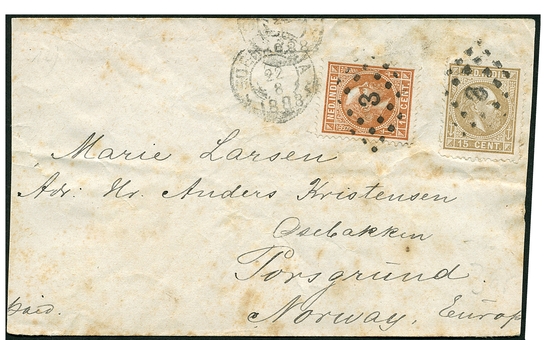 22
8
1888
3
NED.INDIE
CENT
3
NED.INDIE
15 CENT
Marie Larsen
Adr: Hr. Anders Kristensen
Osebakken
Porsgrund.
Norway, Europ
Paid.